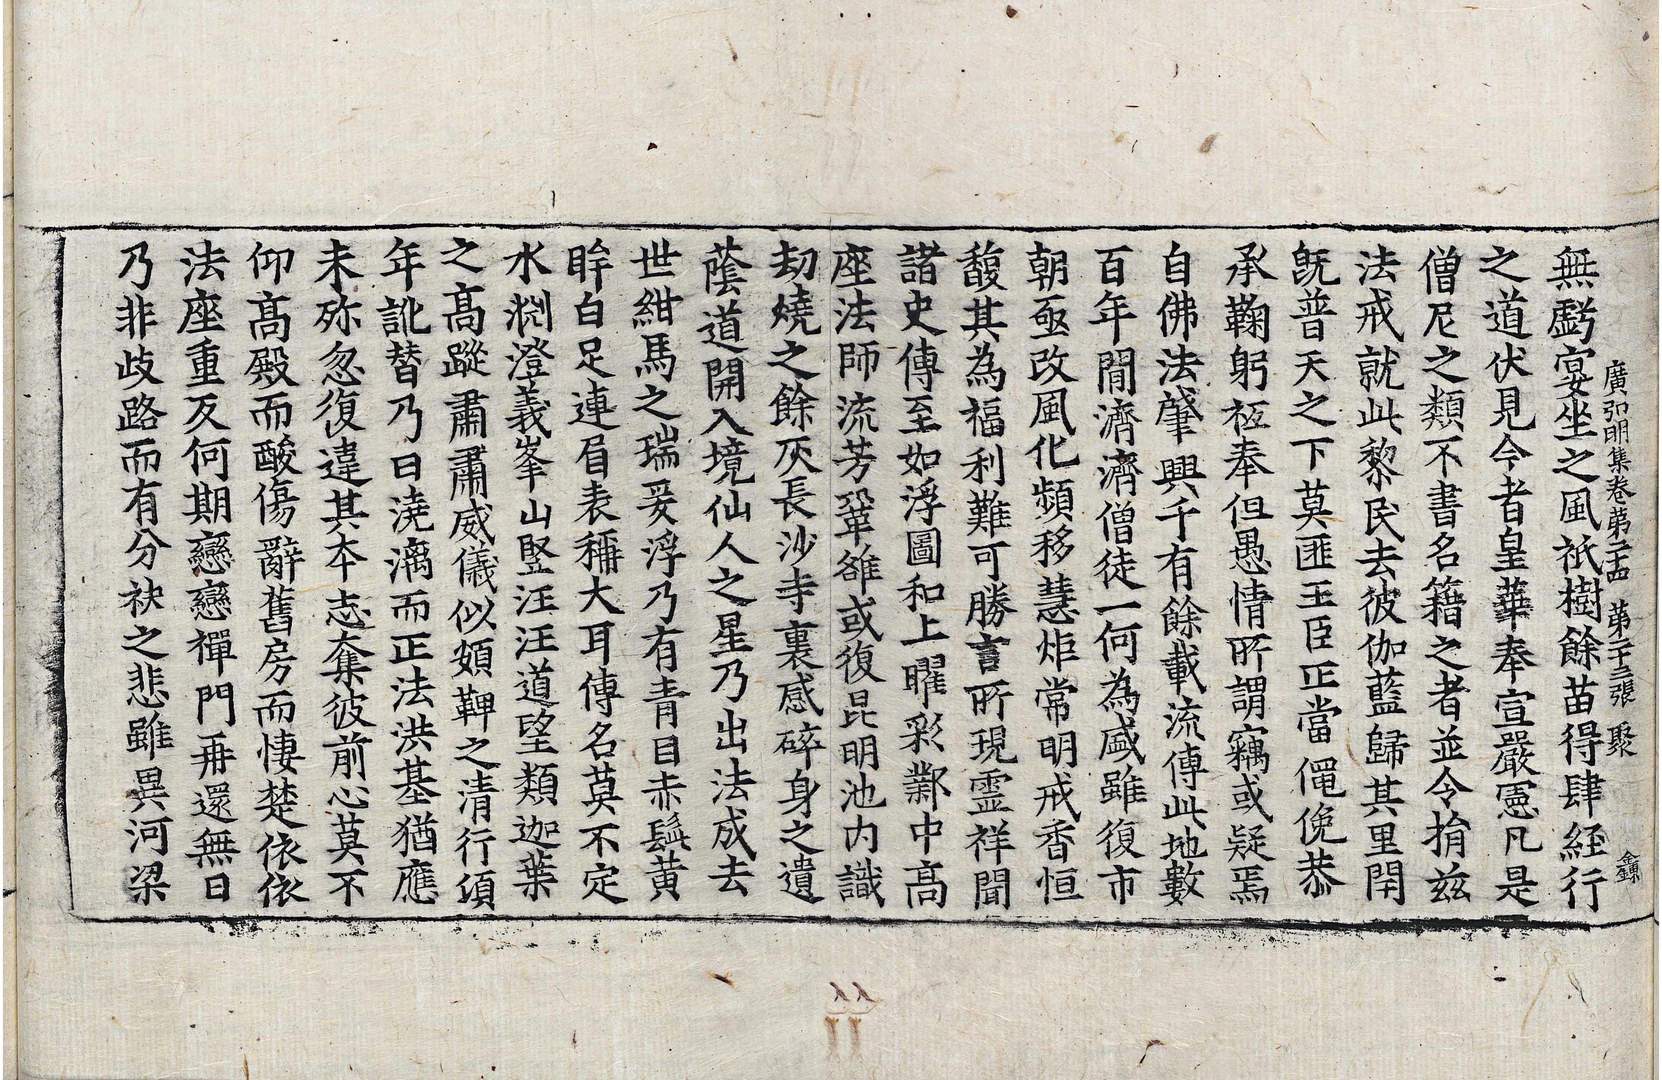 無虧宴坐之風祇樹餘苗得肆経行
廣弘明集卷第二十四　第二十三張　聚
之道伏見今者皇華奉宣嚴憲凡是
僧尼之類不書名籍之者並令捐兹
法戒就此黎民去彼伽藍歸其里閈
既普天之下莫匪王臣正當僶俛恭
承鞠躬祗奉但愚情所謂竊或疑焉
自佛法肇興千有餘載流傳此地數
百年間濟濟僧徒一何為盛雖復市
朝亟改風化頻移慧炬常明戒香恒
馥其為福利難可勝言所現靈祥聞
諸史傳至如浮圖和上曜彩鄴中高
座法師流芳鞏雒或復昆明池内識
劫燒之餘灰長沙寺裏感碎身之遺
蔭道開入境仙人之星乃出法成去
世紺馬之瑞爰浮乃有青目赤髭黄
眸白足連眉表稱大耳傳名莫不定
水淵澄義峯山竪汪汪道望類迦葉
之高蹤肅肅威儀似頞鞞之清行須
年訛替乃曰澆漓而正法洪基猶應
未弥忽復違其本志奪彼前心莫不
仰高殿而酸傷辭舊房而悽楚依依
法座重反何期戀戀禪門再還無日
乃非歧路而有分袂之悲雖異河梁